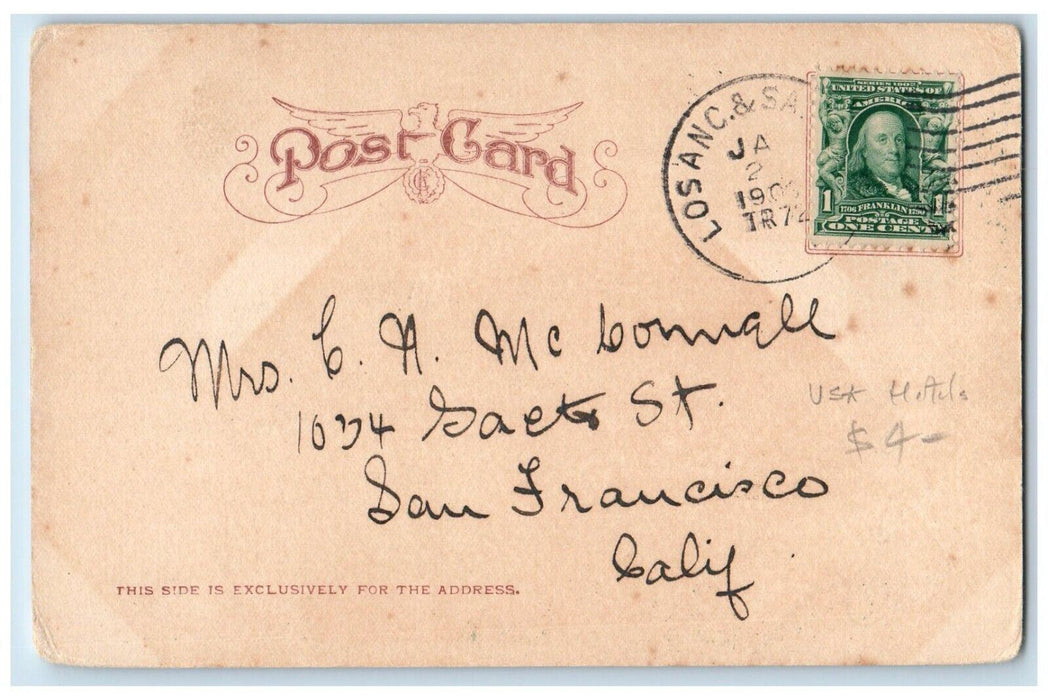 Post Card
LOS ANC. & SA
JA
2
190
TR72
SERIES 1902
UNITED STATES OF
AMERICA
1
1706 FRANKLIN 1790
POSTAGE
ONE CENT
Mrs. C. H. McConnell
1034 St.
San Francisco
Calif
USA Hotels
$4-
THIS SIDE IS EXCLUSIVELY FOR THE ADDRESS.